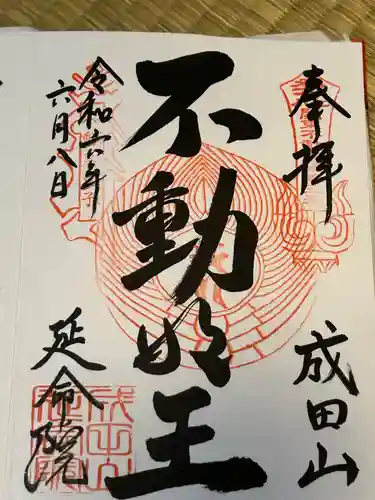 奉拝
成田山
不動明王
令和六年
六月八日
延命院